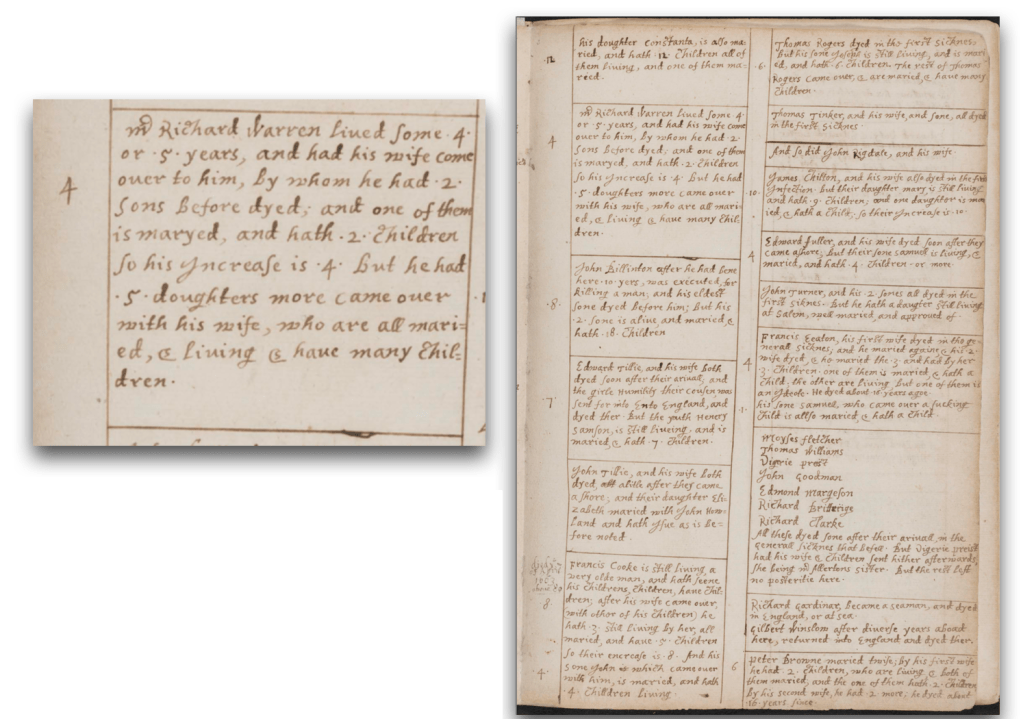 4
mr Richard Warren lived some ·4·
or ·5· years, and had his wife come
over to him, by whom he had ·2·
sons before dyed; and one of them
is maryed, and hath ·2· Children
so his Increase is ·4· But he had
·5· doughters more came over
with his wife, who are all mari=
ed, & living & have many Chil=
dren·
·12·
his doughter Constanta, is also ma
ried, and hath ·12· Children all of
them living, and one of them ma=
ried·
4
mr Richard Warren lived some 4·
or ·5· years, and had his wife come
over to him, by whom he had ·2·
sons before dyed; and one of them
is maryed, and hath ·2· Children
so his Increase is ·4· But he had
·5· doughters more came over
with his wife, who are all mari=
ed, & living & have many Chil=
dren·
·8·
John Billinton after he had bene
here ·10· yers, was executed, for
killing a man; and his eldest
sone dyed before him; But his
·2· sone is alive and maried, &
hath ·8· Children
·7·
Edward Tillie, and his wife both
dyed soon after their arivall; and
the girle Humility their cousen was
sent for into Ento England, and
dyed ther· But the youth Henery
Samson, is still liveing, and is
maried, & hath ·7· Children·
John Tillie, and his wife both
dyed, alitle after they came
a shore; and their daughter Eli=
zabeth maried with John How=
land and hath Isue as is be=
fore noted
8·
Francis Cooke is still living, a
very olde man, and hath seene
his Childrens, Children, have Chil=
dren; after his wife came over,
(with other of his Children) he
hath ·3· still living by her, all
maried, and have ·5· Children
so their encrease is ·8· And his
·4·
sone John which came over
with him, is maried, and hath
·4· Children living·
·6·
Thomas Rogers dyed in the first sicknes,
But his son Joseph is still living, and is mari
ed, and hath ·6· Children. The rest of Thomas
Rogers came over, & are maried, & have many
Children·
Thomas Tinker, and his wife, and sone, all dyed
in the first sicknes
And so did John Rigdale, and his wife·
·10·
James Chilton, and his wife also dyed in the first
Infection· but their daughter mary is still living
and hath ·9· Children; and one daughter is mari
ied, & hath a Child; so their Increase is ·10·
4
Edward fuller, and his wife dyed soon after they
came a shore; But their sone samuell is living, &
maried, and hath ·4· Children· or more·
John Turner, and his ·2· sones all dyed in the
first siknes· But he hath a daugter still living
at Salem, well maried, and approved of·
4
Francis Eeaton, his first wife dyed in the ge=
nerall sicknes, and he maried againe & his ·2·
wife dyed, & he maried the ·3· and had by her
·3· Children· one of them is maried, & hath a
Child; the other are living but one of them is
an Ideote· He dyed about ·16· years agoe·
·1·
his sone samuell, who came over a sucking
Child is allso maried, & hath a Child·
moyses fletcher
Thomas Williams
Digerie preist
John Goodman
Edmond margeson
Richard Britterige
Richard Clarke
All these dyed sone after their arivall, in the
generall sicknes that befell· But Digerie preist
had his wife & Children sent hither afterwards
she being mr Allertons sister· But the rest left
no posteritie here·
Richard Gardinar, became a seaman, and dyed
in England, or at sea·
Gilbert Winslow after diverse years aboad
here, returned into England and dyed ther.
6
Peter Browne maried twise; by his first wife
he had ·2· Children, who are living, & both of
them maried, and the one of them hath ·2· Children
by his second wife, he had ·2· more; he dyed about
·16· years since·